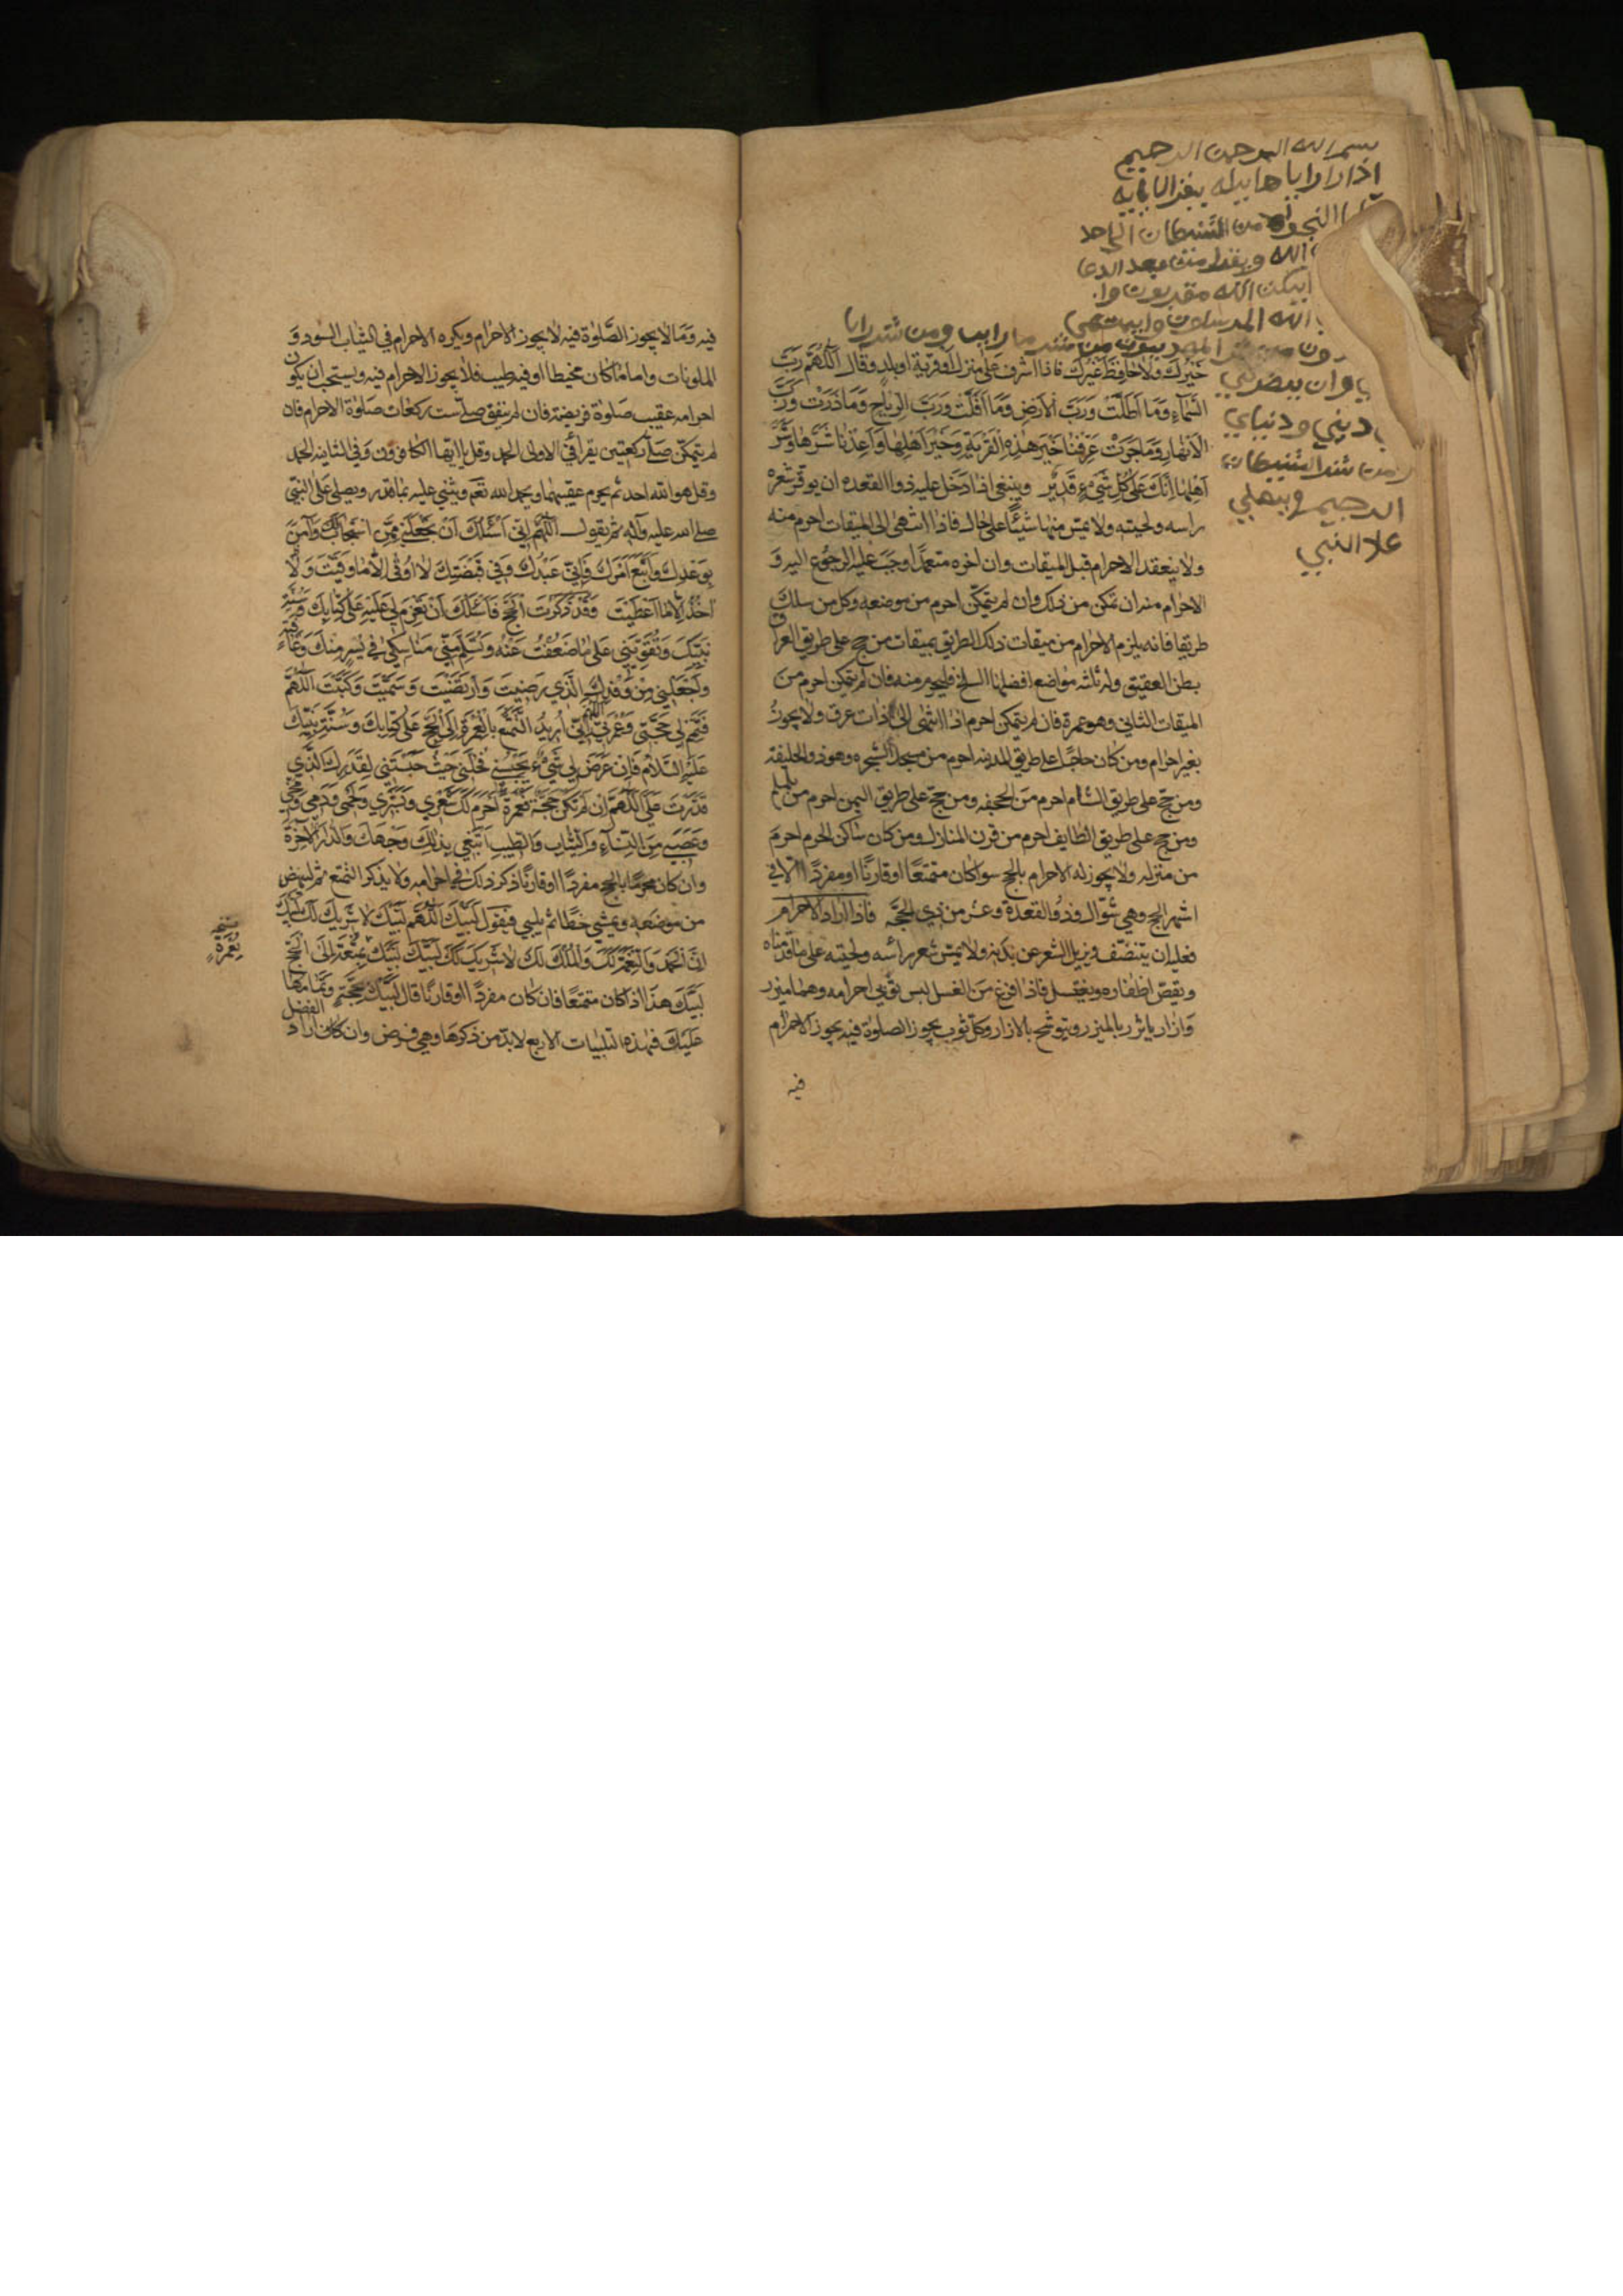 بسم الله الرحمن الرحيم
من الشيطان
الله
الله
ومن شر
ديني ودنياي
الرجيم
علا النبي
خيرك ولا حافظ غيرك فاذا اشرف على منزل او قرية او بلد وقال اللهم رب
السماء وما اظلت ورب الارض وما اقلت ورب الرياح وما ذرت ورب
الانهار وما جرت عرفنا خير هذه القرية وخير اهلها واعذنا شرها وشر
اهلها انك على كل شيء قدير وينبغي اذا دخل عليه ذوا القعده ان يوفر شعر
راسه ولحيته ولا يمس منها شيئا على حال فاذا انتهى الى الميقات احرم منه
ولا ينعقد الاحرام قبل الميقات وان اخره متعمدا وجب عليه الرجوع اليه و
الاحرام منه ان تمكن من ذلك وان لم يتمكن احرم من موضعه وكل من سلك
طريقا فانه يلزم الاحرام من ميقات ذلك الطريق بميقات من حج على طريق العراق
بطن العقيق وله ثلثه مواضع افضلها المسلخ فليحرم منه فان لم يتمكن احرم من
الميقات الثاني وهو غمرة فان لم يتمكن احرم اذا انتهى الى ذات عرق ولا يجوز
بغير احرام ومن كان حاجا على طريق المدينه احرم من مسجد الشجره وهو ذو الحليفة
ومن حج على طريق الشام احرم من الجحفه ومن حج على طريق اليمن احرم من يلملم
ومن حج على طريق الطايف احرم من قرن المنازل ومن كان ساكن الحرم احرم
من منزله ولا يجوز له الاحرام بالحج سوا كان متمتعا او قارنا او مفردا الا في
اشهر الحج وهي شوال وذو القعدة وعشر من ذي الحجة فاذا اراد الاحرام
فعليه ان يتنظف ويزيل الشعر عن بدنه ولا يمس شعر رأسه ولحيته على ما قدمناه
ويقص اظفاره ويغتسل فاذا فرغ من الغسل لبس ثوبي احرامه وهما ميزر
وازار ياتزر بالميزر ويتوشح بالازار وكل ثوب يجوز الصلوة فيه يجوز الاحرام
فيه
فيه وما لا يجوز الصلوة فيه لا يجوز الاحرام ويكره الاحرام في الثياب السود و
الملونات واما ما كان مخيطا او فيه طيب فلا يجوز الاحرام فيه ويستحب ان يكون
احرامه عقيب صلوة فريضة فان لم يتفق صلى ست ركعات صلوة الاحرام فان
لم يتمكن صلى ركعتين يقرا في الاولى الحمد وقل يا ايها الكافرون وفي الثانيه الحمد
وقل هو الله احد ثم يحرم عقيبهما ويحمد الله تعم ويثني عليه بما قدر ويصلي على النبي
صلى الله عليه وآله ثم يقول اللهم اني اسئلك ان تجعلني ممن استجاب لك وآمن
بوعدك واتبع امرك فاني عبدك وفي قبضتك لا اوقى الا ما وقيت ولا
اخذ الا ما اعطيت وقد ذكرت الحج فاسئلك ان تعزم لي عليه على كتابك وسنة
نبيك وتقويني على ما ضعفت عنه وتسلم مني مناسكي في يسر منك وعافية
واجعلني من وفدك الذي رضيت وارتضيت وسميت وكتبت اللهم
فتمم لي حجتي وعمرتي اللهم اني اريد التمتع بالعمرة الى الحج على كتابك وسنة نبيك
عليه السلام فان عرض لي شيء يحبسني فخلني حيث حبستني لقدرك الذي
قدرت علي اللهم ان لم تكن حجة فعمرة احرم لك شعري وبشري ولحمي ودمي ومخي
وعصبي من النساء والثياب والطيب ابتغي بذلك وجهك والدار الآخرة
وان كان محرما بالحج مفردا او قارنا ذكر ذلك في احرامه ولا يذكر التمتع ثم لينهض
من موضعه ويمشي خطا ثم يلبي فيقول لبيك اللهم لبيك لا شريك لك لبيك
ان الحمد والنعمة لك والملك لك لا شريك لك لبيك لبيك بمتعة الى الحج
لبيك هذا اذا كان متمتعا فان كان مفردا او قارنا قال لبيك بحجة وتمامها
عليك فهذه التلبيات الاربع لا بد من ذكرها وهي فرض وان كان اراد
الفضل
بعمرة